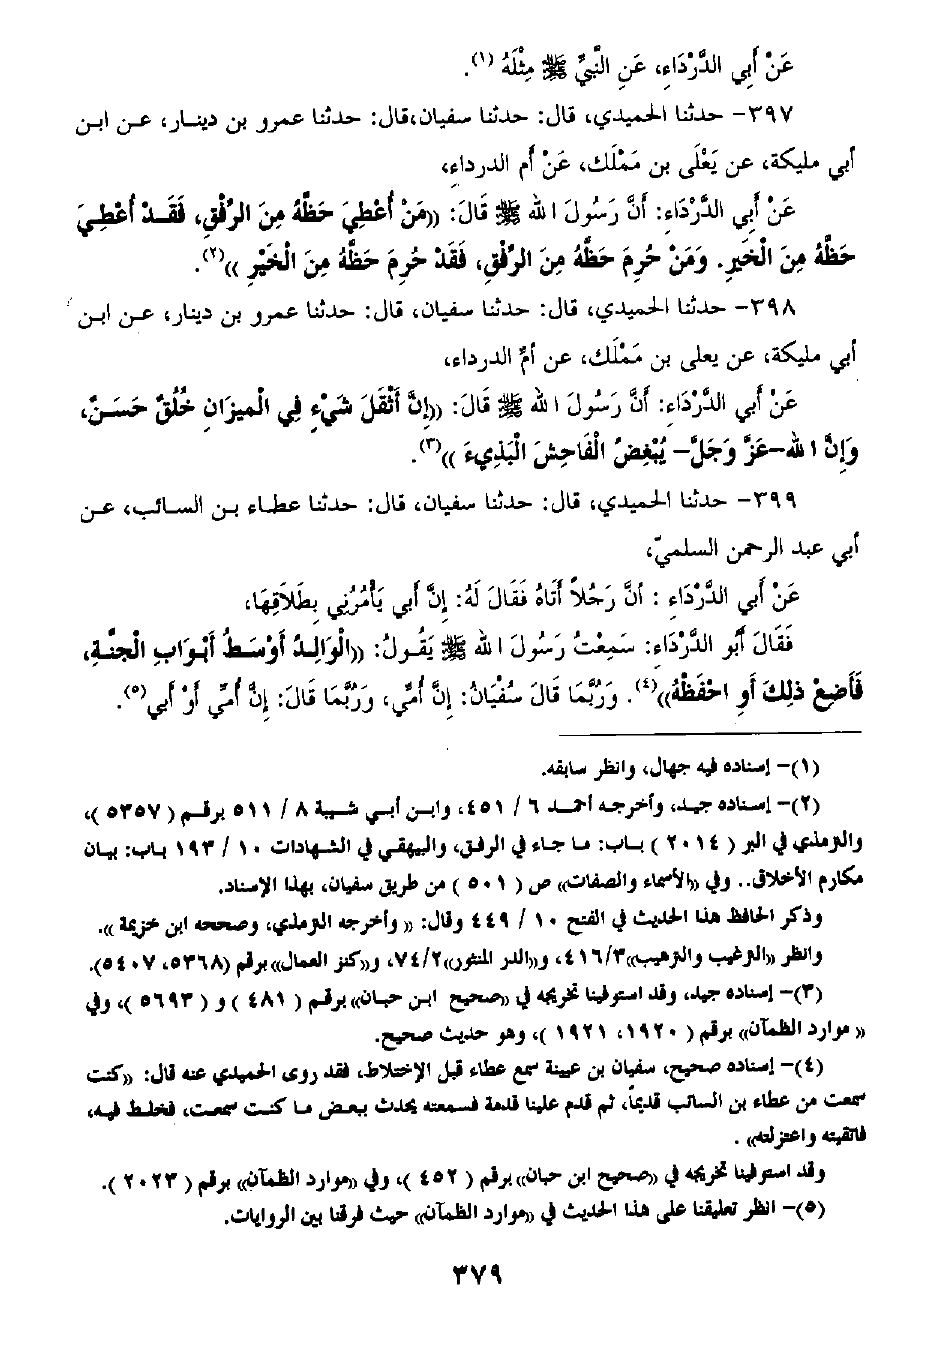 عَنْ أَبِي الدَّرْدَاءِ، عَنِ النَّبِيِّ ﷺ مِثْلَهُ (١).
٣٩٧- حدثنا الحميدي، قال: حدثنا سفيان،قال: حدثنا عمرو بن دينار، عن ابن
أبي مليكة، عن يَعْلَى بن مَمْلَك، عَنْ أم الدرداء،
عَنْ أَبِي الدَّرْدَاءِ: أَنَّ رَسُولَ اللهِ ﷺ قَالَ: ((مَنْ أُعْطِيَ حَظَّهُ مِنَ الرِّفْقِ، فَقَدْ أُعْطِيَ
حَظَّهُ مِنَ الْخَيرِ. وَمَنْ حُرِمَ حَظَّهُ مِنَ الرِّفْقِ، فَقَدْ حُرِمَ حَظَّهُ مِنَ الْخَيْرِ ))(٢).
٣٩٨- حدثنا الحميدي، قال: حدثنا سفيان، قال: حدثنا عمرو بن دينار، عن ابن
أبي مليكة، عن يعلى بن مَمْلَك، عن أمِّ الدرداء،
عَنْ أَبِي الدَّرْدَاءِ: أَنَّ رَسُولَ اللهِ ﷺ قَالَ: ((إِنَّ أَثْقَلَ شَيْءٍ فِي الْمِيزَانِ خُلُقٌ حَسَنٌ،
وَإِنَّ اللهَ-عَزَّ وَجَلَّ- يُبْغِضُ الْفَاحِشَ الْبَذِيءَ ))(٣).
٣٩٩- حدثنا الحميدي، قال: حدثنا سفيان، قال: حدثنا عطاء بن السائب، عن
أبي عبد الرحمن السلميّ،
عَنْ أَبِي الدَّرْدَاءِ : أنَّ رَجُلاً أَتَاهُ فَقَالَ لَهُ: إِنَّ أَبِي يَأْمُرُنِي بِطَلاَقِهَا،
فَقَالَ أَبُو الدَّرْدَاءِ: سَمِعْتُ رَسُولَ اللهِ ﷺ يَقُولُ: ((الْوَالِدُ أَوْسَطُ أَبْوَابِ الْجَنَّةِ،
فَأَضِعْ ذلِكَ أَوِ احْفَظْهُ))(٤). وَرُبَّمَا قَالَ سُفْيَانُ: إِنَّ أُمِّي، وَرُبَّمَا قَالَ: إِنَّ أُمِّي أَوْ أَبي(٥).
(١)- إسناده فيه جهال، وانظر سابقه.
(٢)- إسناده جيد، وأخرجه أحمد ٦ / ٤٥١، وابن أبي شيبة ٨ / ٥١١ برقم ( ٥٣٥٧ )،
والترمذي في البر ( ٢٠١٤ ) باب: ما جاء في الرفق، والبيهقي في الشهادات ١٠ / ١٩٣ باب: بيان
مكارم الأخلاق.. وفي ((الأسماء والصفات)) ص ( ٥٠١ ) من طريق سفيان، بهذا الإسناد.
وذكر الحافظ هذا الحديث في الفتح ١٠ / ٤٤٩ وقال: (( وأخرجه الترمذي، وصححه ابن خزيمة )).
وانظر ((الترغيب والترهيب))٤١٦/٣، و((الدر المنثور))٧٤/٢، و((كنز العمال))برقم (٥٣٦٨، ٥٤٠٧).
(٣)- إسناده جيد، وقد استوفينا تخريجه في ((صحيح ابن حبان))برقم ( ٤٨١ ) و ( ٥٦٩٣ )، وفي
(( موارد الظمآن)) برقم ( ١٩٢٠، ١٩٢١ )، وهو حديث صحيح.
(٤)- إسناده صحيح، سفيان بن عيينة سمع عطاء قبل الإختلاط، فقد روى الحميدي عنه قال: ((كنت
سمعت من عطاء بن السائب قديماً، ثم قدم علينا قدمة فسمعته يحدث ببعض ما كنت سمعت، فخلط فيه،
فاتقيته واعتزلته)) .
وقد استوفينا تخريجه في ((صحيح ابن حبان))برقم ( ٤٥٢ )، وفي ((موارد الظمآن)) برقم ( ٢٠٢٣ ).
(٥)- انظر تعليقنا على هذا الحديث في ((موارد الظمآن)) حيث فرقنا بين الروايات.
٣٧٩